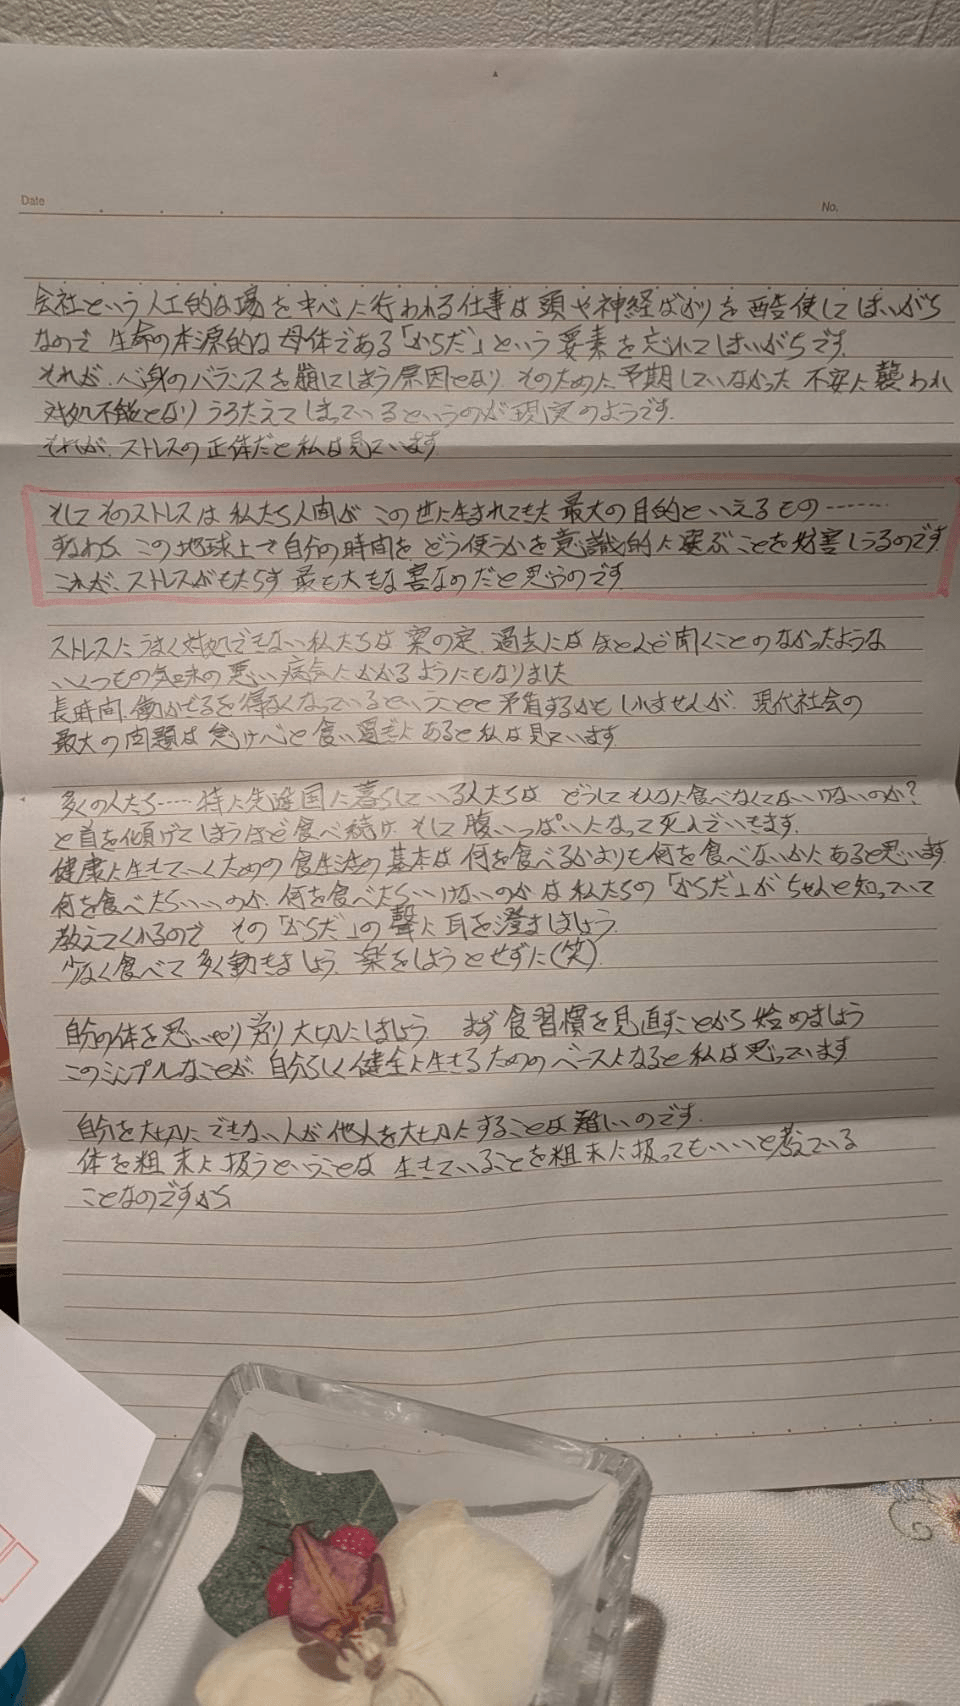 Date
No.
会社という人工的な場を中心に行われる仕事は頭や神経ばかりを酷使してしまいがち
なので生命の本源的な母体である「からだ」という要素を忘れてしまいがちです。
それが、心身のバランスを崩してしまう原因となり そのために予期していなかった 不安に襲われ
対処不能となり うろたえてしまっているというのが現実のようです。
それが、ストレスの正体だと私は見ています。
そして そのストレスは 私たち人間が この世に生まれてきた 最大の目的といえるもの………
すなわち この地球上で自分の時間を どう使うかを意識的に選ぶことを妨害しうるのです。
これが、ストレスがもたらす 最も大きな害なのだと思うのです。
ストレスにうまく対処できない私たちは 案の定、過去には ほとんど聞くことのなかったような
いくつもの気味の悪い 病気にかかるようにもなりました
長時間、働かざるを得なくなっているということと矛盾するかもしれませんが、現代社会の
最大の問題は 怠け心と食い過ぎにあると私は見ています。
多くの人たち……特に先進国に暮らしている人たちは どうしてそんなに食べなくてはいけないのか?
と首を傾げてしまうほど食べ続け そして腹いっぱいになって死んでいきます。
健康に生きていくための食生活の基本は 何を食べるかよりも何を食べないかにあると思います。
何を食べたらいいのか、何を食べたらいけないのかは 私たちの「からだ」がちゃんと知っていて
教えてくれるので その「からだ」の聲に耳を澄ましましょう。
少なく食べて 多く動きましょう、楽をしようとせずに(笑)
自分の体を思いやり 大切にしましょう。 まず 食習慣を見直すことから始めましょう
このシンプルなことが 自分らしく健全に生きるためのベースになると私は思っています
自分を大切にできない人が 他人を大切にすることは難しいのです。
体を粗末に扱うということは 生きていることを粗末に扱ってもいいと考えている
ことなのですから